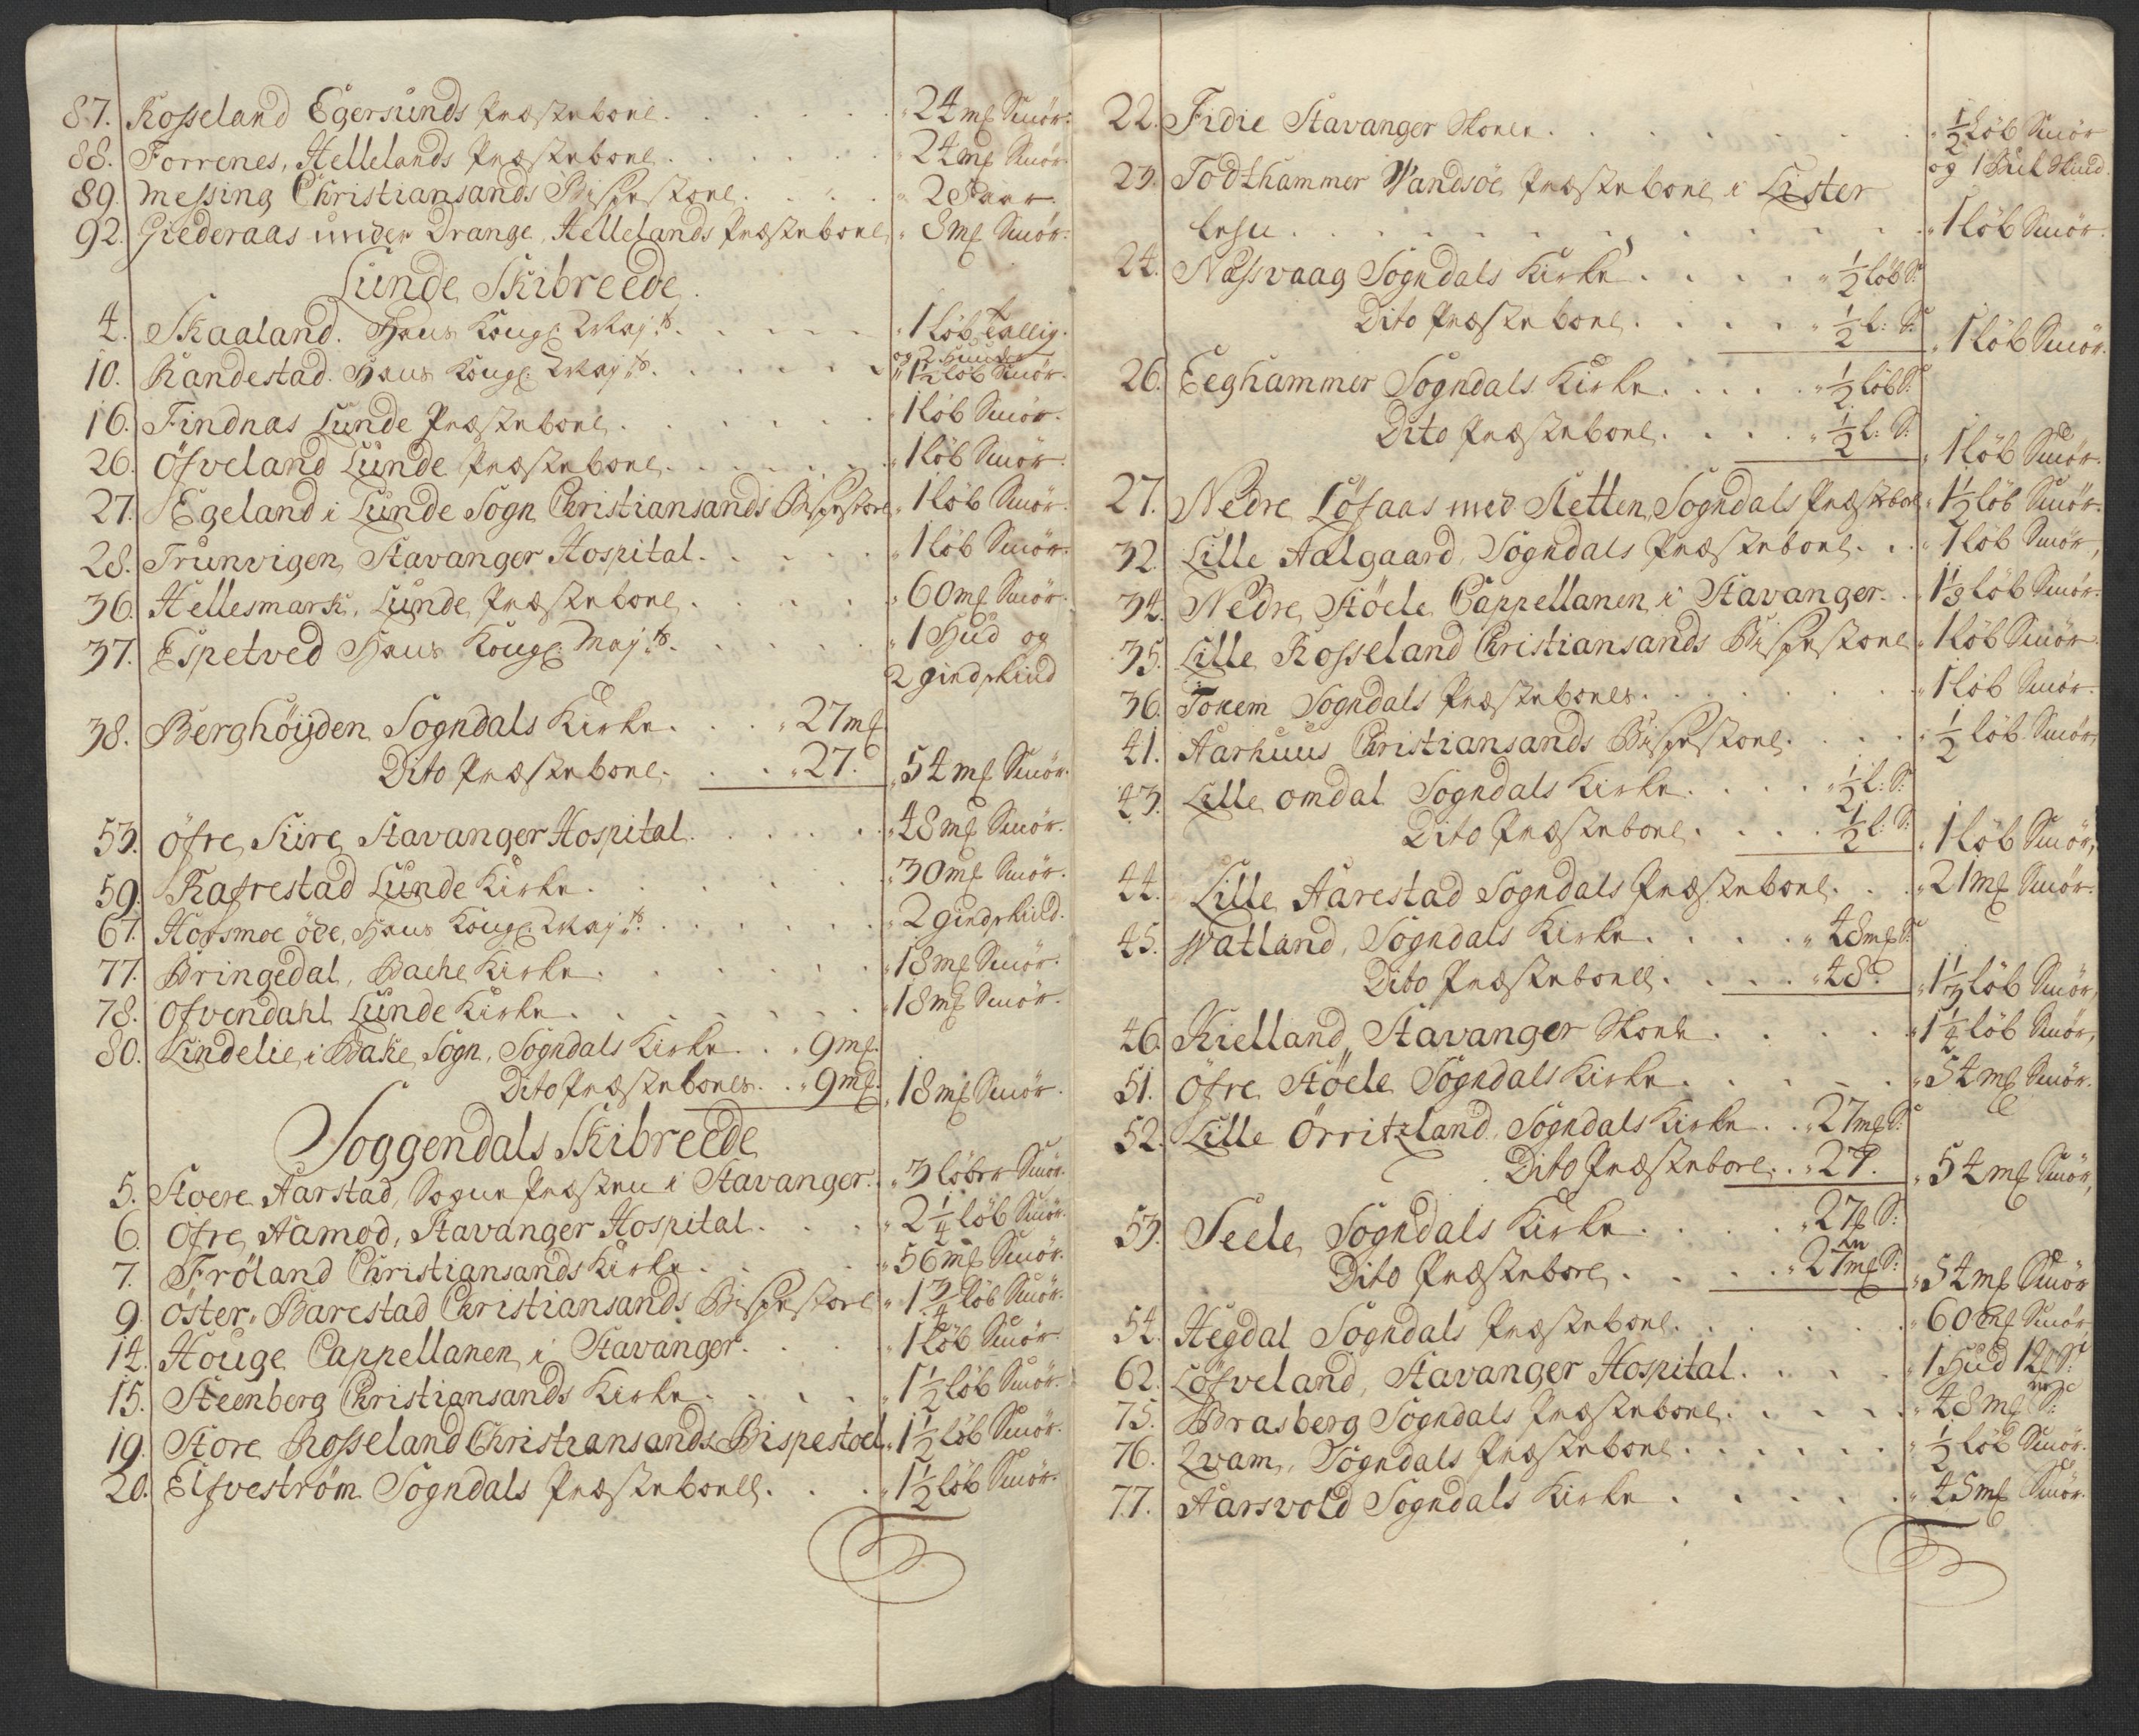 87. Rosseland Egersunds Præstebool. . . . . . „ 24 mk Smør.
88. Torrenes, Hellelands Præstebool. . . . . . „ 24 mk Smør.
89. Messing Christiansands Bispestoel. . . . . „ 2 Faar.
92. Giederaas under Drange, Hellelands Præstebool „ 8 mk Smør.
Lunde Skibreede.
4. Skaaland. Hans Kongl: Mayts. . . . . „ 1 Løb Tallig.
og 2 Huuder
10. Randestad. Hans Kongl: Mayts. . . . . „ 1½ Løb Smør.
16. Findnas Lunde Præstebool. . . . . . „ 1 Løb Smør.
26. Öfveland Lunde Præstebool. . . . . . „ 1 Løb Smør.
27. Egeland i Lunde Sogn Christiansands Bispestoel „ 1 Løb Smør.
28. Trunvigen, Stavanger Hospital. . . . . „ 1 Løb Smør.
36. Hellesmark, Lunde Præstebool. . . . . „ 60 mk Smør.
37. Espetved Hans Kongl: Mayts. . . . . „ 1 Hud og
2 giedskind
38. Berghöyden Sogndals Kirke. . . „ 27 mk
Dito Præstebool. . . . „ 27. „ 54 mk Smør.
53. Öfre Sire, Stavanger Hospital. . . . . „ 48 mk Smør.
59. Rafrestad Lunde Kirke. . . . . . „ 30 mk Smør.
61. Horsmoe öde, Hans Kongl: Mayts. . . . . . „ 2 giedskild.
77. Bringedal, Bache Kirke. . . . . . „ 18 mk Smør.
78. Ofvendahl Lunde Kirke. . . . . . „ 18 mk Smør.
80. Lindelie, i Bake Sogn, Sogndals Kirke. . . „ 9 mk.
Dito Præstebooles. . „ 9 mk. „ 18 mk Smør.
Soggendals Skibreede
5. Stoere Aarstad, Sogne Præsten i Stavanger. „ 3 Løber Smør.
6. Öfre Aamod, Stavanger Hospital. . . . „ 2¼ Løb Smør.
7. Frøland Christiansands Kirke. . . . . „ 56 mk Smør.
9. Öster Barestad Christiansands Bispestoel „ 1¾ Løb Smør.
14. Houge Cappellanen i Stavanger. . . . „ 1 Løb Smør.
15. Steenberg Christiansands Kirke. . . . . „ 1½ Løb Smør.
19. Store Rosseland Christiansands Bispestoel „ 1½ Løb Smør.
20. Elfveström Sogndals Præsteboell. . . . „ 1½ Løb Smør.
22. Fidie Stavanger Skole. . . . . . . „ ½ Løb Smør
23. Födthammer Vandsöe Præstebool i Lister
Lehn. . . . . . . . . . „ 1 Løb Smør.
24. Nassvaag Sogndals Kirke. . . . „ ½ Løb S:
Dito Præstebool. . . . „ ½ L: S: „ 1 Løb Smør.
26. Eeghammer Sogndals Kirke. . . . „ ½ Løb S:
Dito Præstebool. . . . „ ½ L: S: „ 1 Løb Smør.
27. Nedre Löfaas med Sletten, Sogndals Præstebool „ 1½ Løb Smør.
32. Lille Aalgaard, Sogndals Præstebool. . . „ 1 Løb Smør,
34. Nedre Stöele Cappellanen i Stavanger. . „ 1⅓ Løb Smør.
35. Lille Rosseland Christiansands Bispestoel „ 1 Løb Smør.
36. Tokem Sogndals Præstebooles. . . . . . „ 1 Løb Smør.
41. Aarhuus Christiansands Bispestoel. . . . „ ½ Løb Smør,
43. Lille omdal Sogndals Kirke. . . . „ ½ L: S:
Dito Præstebool. . . . ½ L: S: „ 1 Løb Smør,
44. Lille Aarestad Sogndals Præstebool. . . „ 21 mk Smør.
45. Watland, Sogndals Kirke. . . . „ 48 mk S:
Dito Præsteboell. . . . „ 48. „ 1⅓ Løb Smør,
46. Kielland, Stavanger Skole. . . . . „ 1¼ Løb Smør,
51. Öfre Stöele Sogndals Kirke. . . . . „ 54 mk Smør.
52. Lille Örritzland, Sogndals Kirke. . . „ 27 mk S:
Dito Præstebool. . . „ 27. „ 54 mk Smør,
53. Seele Sogndals Kirke. . . . „ 27 S:
Dito Præstebool. . . . „ 27 mk S: „ 54 mk Smør
54. Hegdal Sogndals Præstebool. . . . . . „ 60 mk Smør
62. Löfveland, Stavanger Hospital. . . . . „ 1 Hud 12 S:
75. Brasberg Sogndals Præstebool. . . . . „ 48 mk S:
76. Qvam, Sogndals Præstebool. . . . . . „ ½ Løb Smør.
77. Aarsvold Sogndals Kirke. . . . . . „ 45 mk Smør.